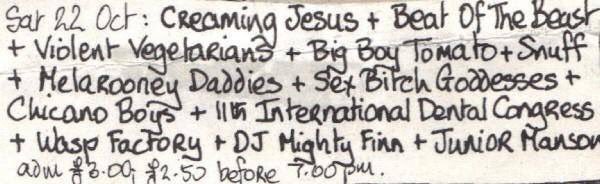 Sat 22 Oct: Creaming Jesus + Beat Of The Beast
+ Violent Vegetarians + Big Boy Tomato + Snuff
+ Melarooney Daddies + Sex Bitch Goddesses +
Chicano Boys + 11th International Dental Congress
+ Wasp Factory + DJ Mighty Finn + Junior Manson
adm £3.00; £2.50 before 7.00pm.